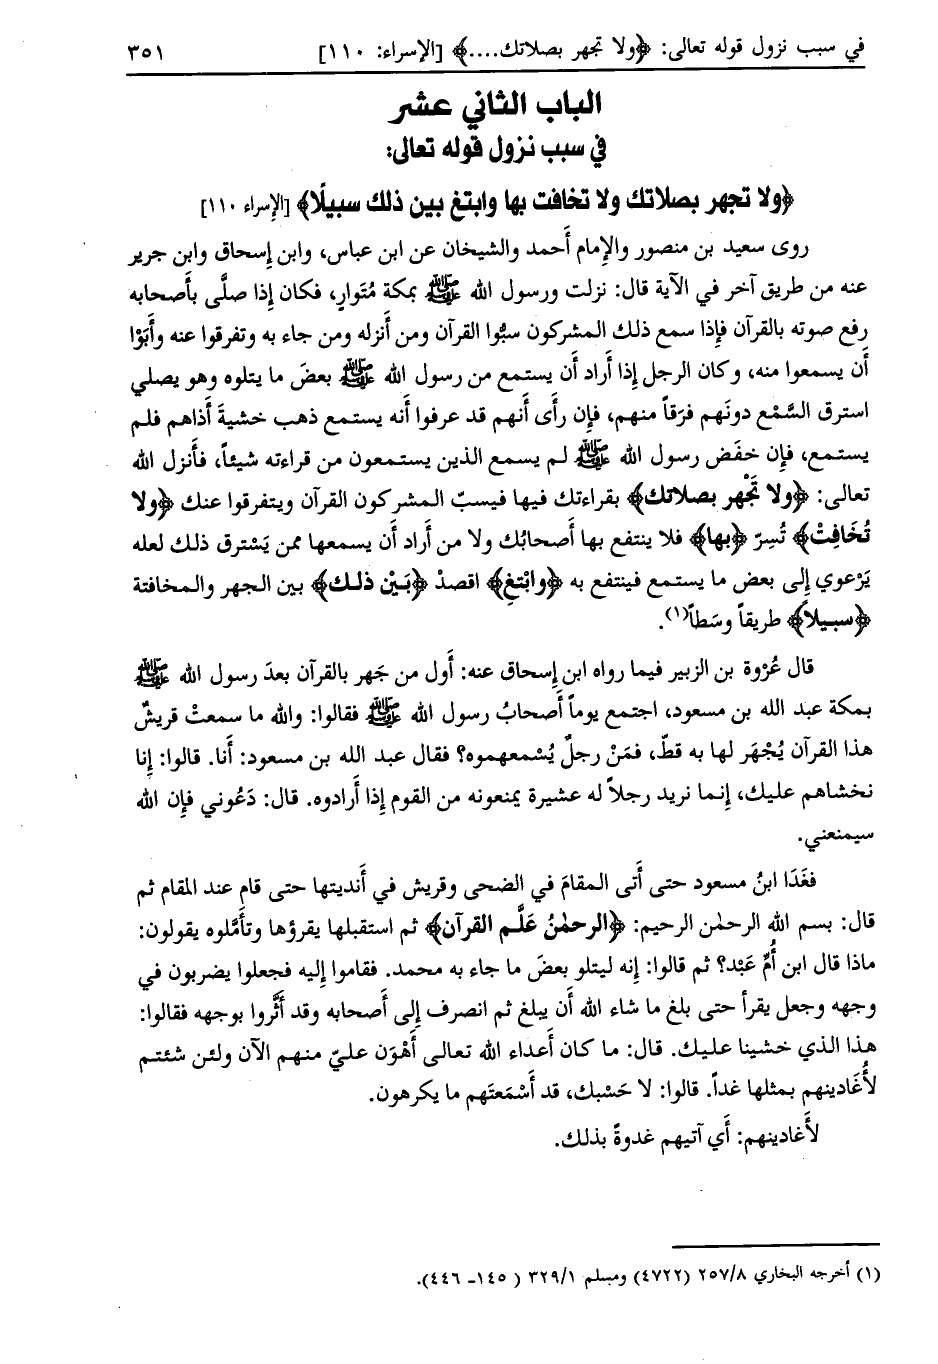 في سبب نزول قوله تعالى: ﴿ولا تجهر بصلاتك....﴾ [الإسراء: ١١٠] ٣٥١
الباب الثاني عشر
في سبب نزول قوله تعالى:
﴿ولا تجهر بصلاتك ولا تخافت بها وابتغ بين ذلك سبيلًا﴾ [الإسراء ١١٠]
روى سعيد بن منصور والإمام أَحمد والشيخان عن ابن عباس، وابن إِسحاق وابن جرير
عنه من طريق آخر في الآية قال: نزلت ورسول الله ﷺ بمكة مُتَوارٍ، فكان إِذا صلَّى بأَصحابه
رفع صوته بالقرآن فإِذا سمع ذلك المشركون سبُّوا القرآن ومن أَنزله ومن جاء به وتفرقوا عنه وأَبَوْا
أَن يسمعوا منه، وكان الرجل إِذا أَراد أَن يستمع من رسول الله ﷺ بعضَ ما يتلوه وهو يصلي
استرق السَّمْع دونَهم فرَقاً منهم، فإِن رأَى أَنهم قد عرفوا أَنه يستمع ذهب خشيةَ أَذاهم فلم
يستمع، فإِن خفَض رسول الله ﷺ لم يسمع الذين يستمعون من قراءته شيئاً، فأَنزل الله
تعالى: ﴿ولا تَجْهر بصلاتك﴾ بقراءتك فيها فيسبّ المشركون القرآن ويتفرقوا عنك ﴿ولا
تُخَافِتْ﴾ تُسِرّ ﴿بها﴾ فلا ينتفع بها أَصحابُك ولا من أَراد أَن يسمعها ممن يَسْترق ذلك لعله
يَرْعوي إِلى بعض ما يستمع فينتفع به ﴿وابْتغِ﴾ اقصدْ ﴿بَيْن ذلك﴾ بين الجهر والمخافتة
﴿سبيلاً﴾ طريقاً وسَطاً(١).
قال عُرْوة بن الزبير فيما رواه ابن إِسحاق عنه: أَول من جَهر بالقرآن بعدَ رسول الله ﷺ
بمكة عبد الله بن مسعود، اجتمع يوماً أَصحابُ رسول الله ﷺ فقالوا: والله ما سمعتْ قريشٌ
هذا القرآن يُجْهَر لها به قطّ، فمَنْ رجلٌ يُسْمعهموه؟ فقال عبد الله بن مسعود: أَنا. قالوا: إِنا
نخشاهم عليك، إِنما نريد رجلاً له عشيرة يمنعونه من القوم إِذا أَرادوه. قال: دَعُوني فإِن الله
سيمنعني.
فغَدَا ابنُ مسعود حتى أَتى المقامَ في الضحى وقريش في أَنديتها حتى قام عند المقام ثم
قال: بسم الله الرحمٰن الرحيم: ﴿الرحمٰنُ عَلَّم القرآن﴾ ثم استقبلها يقرؤها وتأَمَّلوه يقولون:
ماذا قال ابن أُمِّ عَبْد؟ ثم قالوا: إِنه ليتلو بعضَ ما جاء به محمد. فقاموا إِليه فجعلوا يضربون في
وجهه وجعل يقرأ حتى بلغ ما شاء الله أَن يبلغ ثم انصرف إِلى أَصحابه وقد أَثَّروا بوجهه فقالوا:
هذا الذي خشينا عليك. قال: ما كان أَعداء الله تعالى أَهْوَن عليّ منهم الآن ولئن شئتم
لأُغَادينهم بمثلها غداً. قالوا: لا حَسْبك، قد أَسْمَعتَهم ما يكرهون.
لأَُغادينهم: أَي آتيهم غدوةً بذلك.
(١) أخرجه البخاري ٢٥٧/٨ (٤٧٢٢) ومسلم ٣٢٩/١ (١٤٥ـ ٤٤٦).